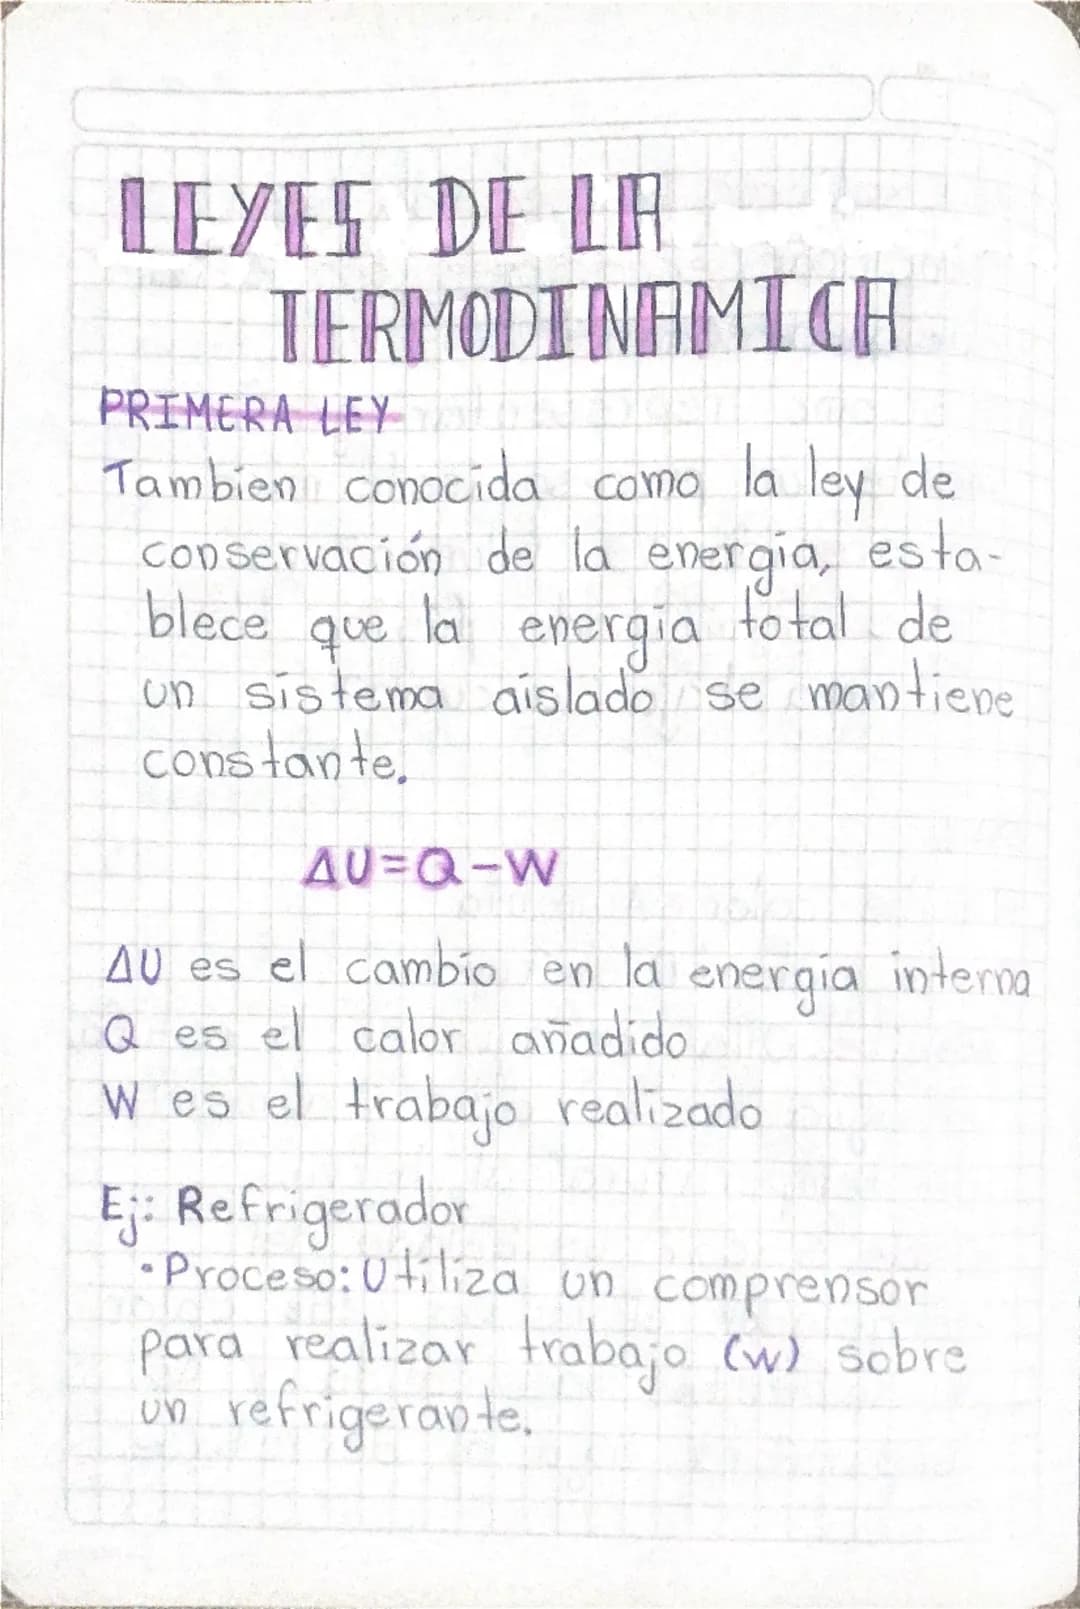 LEYES DE LA
TERMODINAMICA
PRIMERA LEY
Tambien conocida como la ley de
conservación de la energia, esta-
blece que la energia total de
un sistema aislado se mantiene
constante.
ΔU=Q-W
ΔU es el cambio en la energia interna
Q es el calor añadido
W es el trabajo realizado
Ej: Refrigerador
•Proceso: Utiliza un comprensor
para realizar trabajo (w) sobre
un refrigerante.